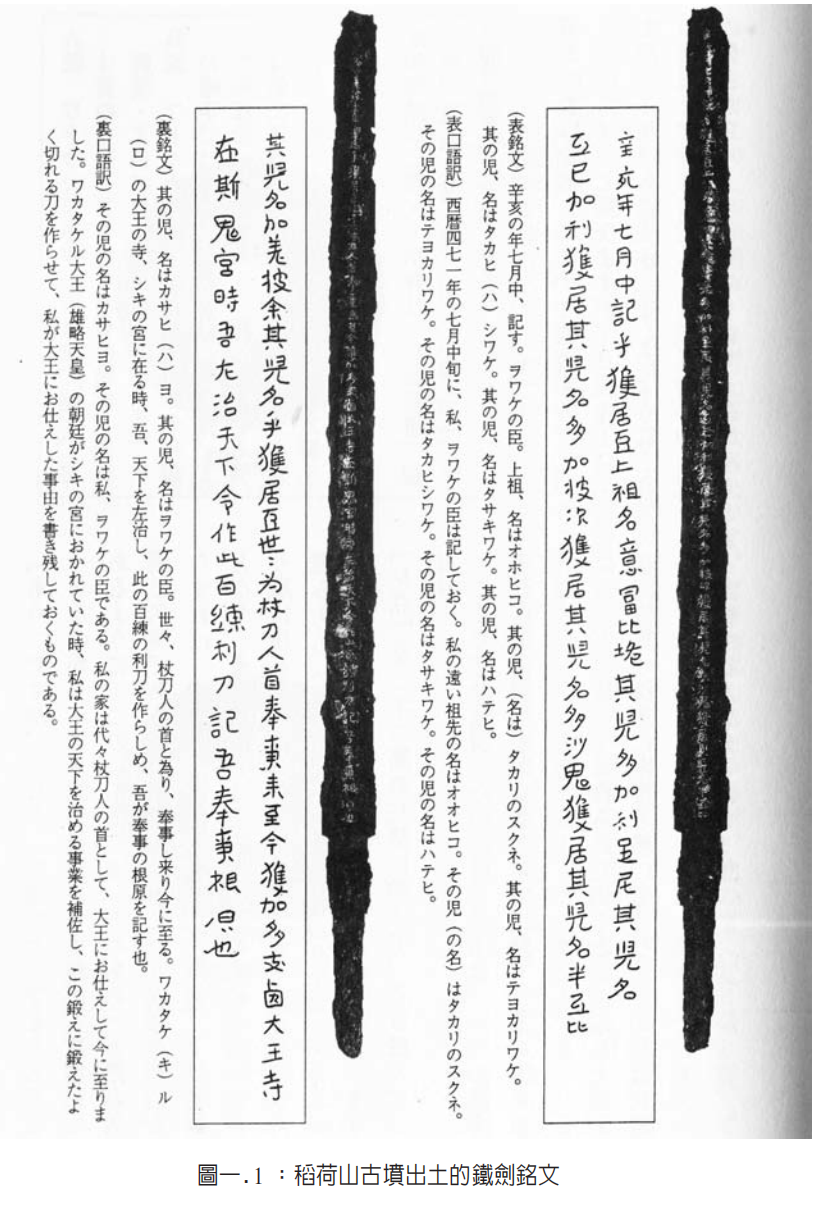 辛亥年七月中記乎獲居臣上祖名意冨比垝其児多加利足尼其児名
弖已加利獲居其児名多加披次獲居其児名多沙鬼獲居其児名半弖比
(表銘文) 辛亥の年七月中、記す。ヲワケの臣。上祖、名はオホヒコ。其の児、(名は) タカリのスクネ。其の児、名はテヨカリワケ。
其の児、名はタカヒ (ハ) シワケ。其の児、名はタサキワケ。其の児、名はハテヒ。
(表口語訳) 西暦四七一年の七月中旬に、私、ヲワケの臣は記しておく。私の遠い祖先の名はオオヒコ。その児 (の名) はタカリのスクネ。
その児の名はテヨカリワケ。その児の名はタカヒシワケ。その児の名はタサキワケ。その児の名はハテヒ。
其児名加差披余其児名乎獲居臣世々為杖刀人首奉事来至今獲加多支鹵大王寺
在斯鬼宮時吾左治天下令作此百練利刀記吾奉事根原也
(裏銘文) 其の児、名はカサヒ (ハ) ヨ。其の児、名はヲワケの臣。世々、杖刀人の首と為り、奉事し来り今に至る。ワカタケ (キ) ル
(ロ) の大王の寺、シキの宮に在る時、吾、天下を左治し、此の百練の利刀を作らしめ、吾が奉事の根原を記す也。
(裏口語訳) その児の名はカサヒヨ。その児の名は私、ヲワケの臣である。私の家は代々杖刀人の首として、大王にお仕えして今に至りま
した。ワカタケル大王 (雄略天皇) の朝廷がシキの宮におかれていた時、私は大王の天下を治める事業を補佐し、この鍛えに鍛えたよ
く切れる刀を作らせて、私が大王にお仕えした事由を書き残しておくものである。
圖一.1 ：稻荷山古墳出土的鐵劍銘文